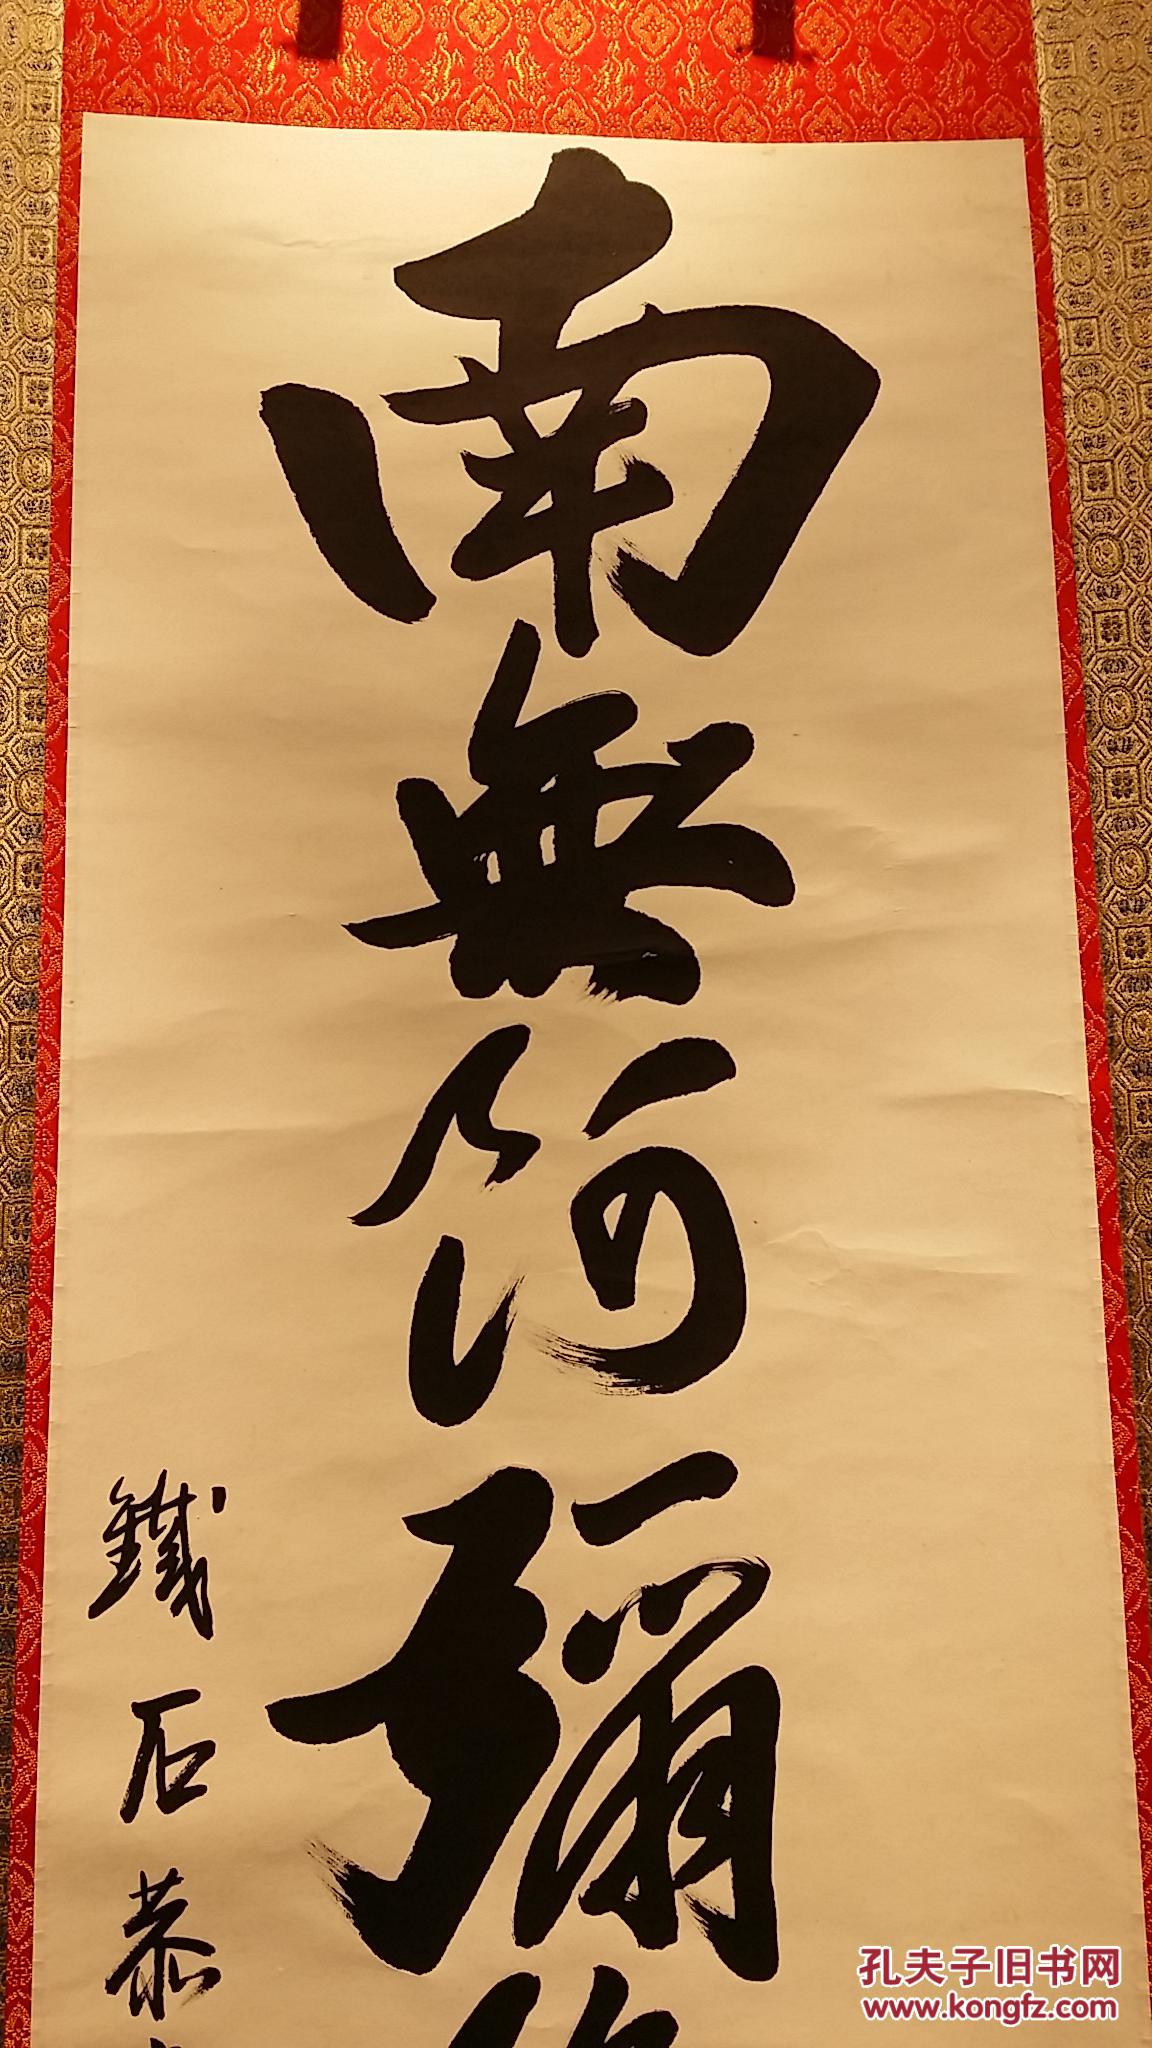 南無阿彌
鐵石恭
孔夫子旧书网
www.kongfz.com